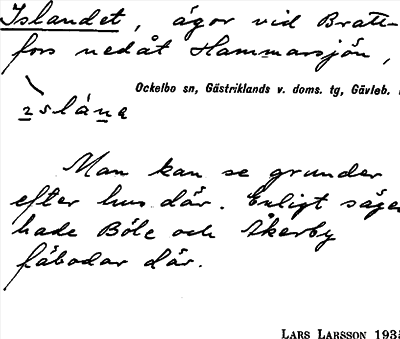 Islandet, ägor vid Bratt-
fors nedåt Hammarsjön,
Ockelbo sn, Gästriklands v. doms. tg, Gävleb.
Man kan se grunder
efter hus där. Enligt säge
hade Böle och Åkerby
fäbodar där.
LARS LARSSON 1935